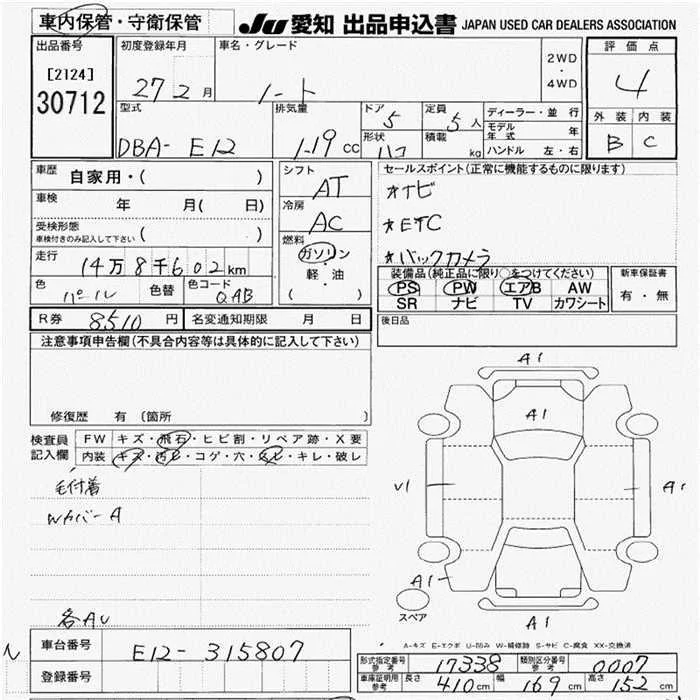 車内保管・守衛保管 JU 愛知 出品申込書 JAPAN USED CAR DEALERS ASSOCIATION
出品番号 初度登録年月 車名・グレード 評価点
[2124] 2WD
・
30712 27 2月 ノート 4WD 4
型式 排気量 ドア 5 定員 5人 ディーラー・並行 外装 内装
モデル年式 年
DBA- E12 1.19 cc 形状 ハコ 積載 kg ハンドル 左・右 B C
車歴 自家用・( ) シフト AT セールスポイント(正常に機能するものに限ります)
車検 年 月( 日) 冷房 AC *ナビ
受検形態 *ETC
車検付きのみ記入して下さい ( ) 燃料 *バックカメラ
走行 14万8千602km ガソリン
軽・油
( )
装備品(純正品に限り○をつけてください) 新車保証書
色 パール 色替 色コード QAB PS PW エアB AW 有・無
SR ナビ TV カワシート
R券 8510円 名変通知期限 月 日 後日品
注意事項申告欄(不具合内容等は具体的に記入して下さい)
修復歴 有 〔箇所 〕
検査員 FW キズ・飛石・ヒビ割・リペア跡・X要
記入欄 内装 キズ・汚レ・コゲ・穴・スレ・キレ・破レ
毛付着
Wカバー A
各AU
A1
A1
V1
A1
A1
A1
スペア
A-キズ E-エクボ U-凹み W-補修跡 S-サビ C-腐食 XX-交換済
車台番号 E12-315807
登録番号
型式指定番号 参考 17338 類別区分番号 参考 0007
車庫証明用 参考 長さ 410cm 幅 169cm 高さ 152cm